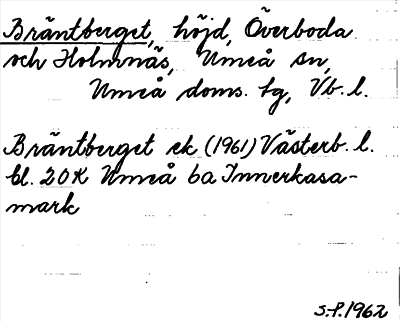 Bräntberget, höjd, Överboda
och Holmnäs, Umeå sn,
Umeå doms. tg, Vb. l.
Bräntberget ek (1961) Västerb. l.
bl. 20K Umeå 6a Innerkasa-
mark
S.P. 1962